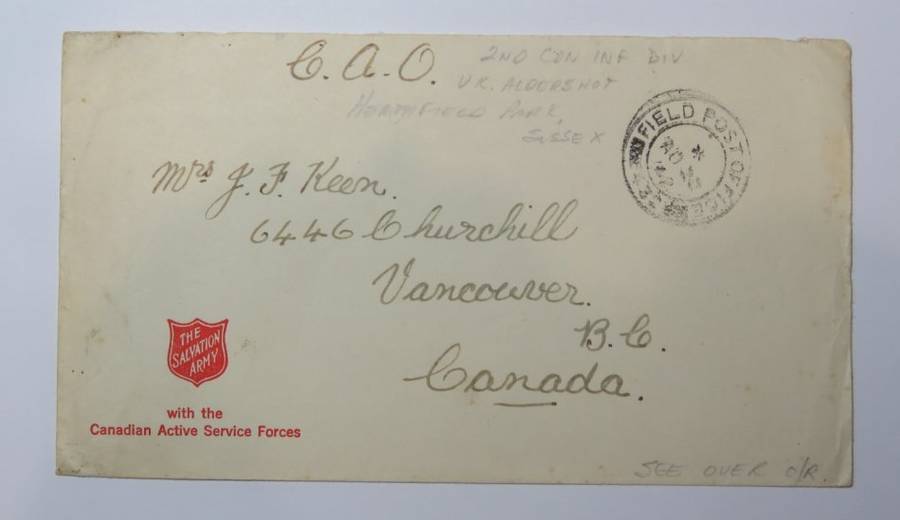 C. A. O.
2ND CON INF DIV
UK. ALDERSHOT
HEATHFIELD PARK,
SUSSEX
FIELD POST OFFICE
Mrs J. F. Keen.
6446 Churchill
Vancouver.
B. C.
Canada.
THE
SALVATION
ARMY
with the
Canadian Active Service Forces
SEE OVER